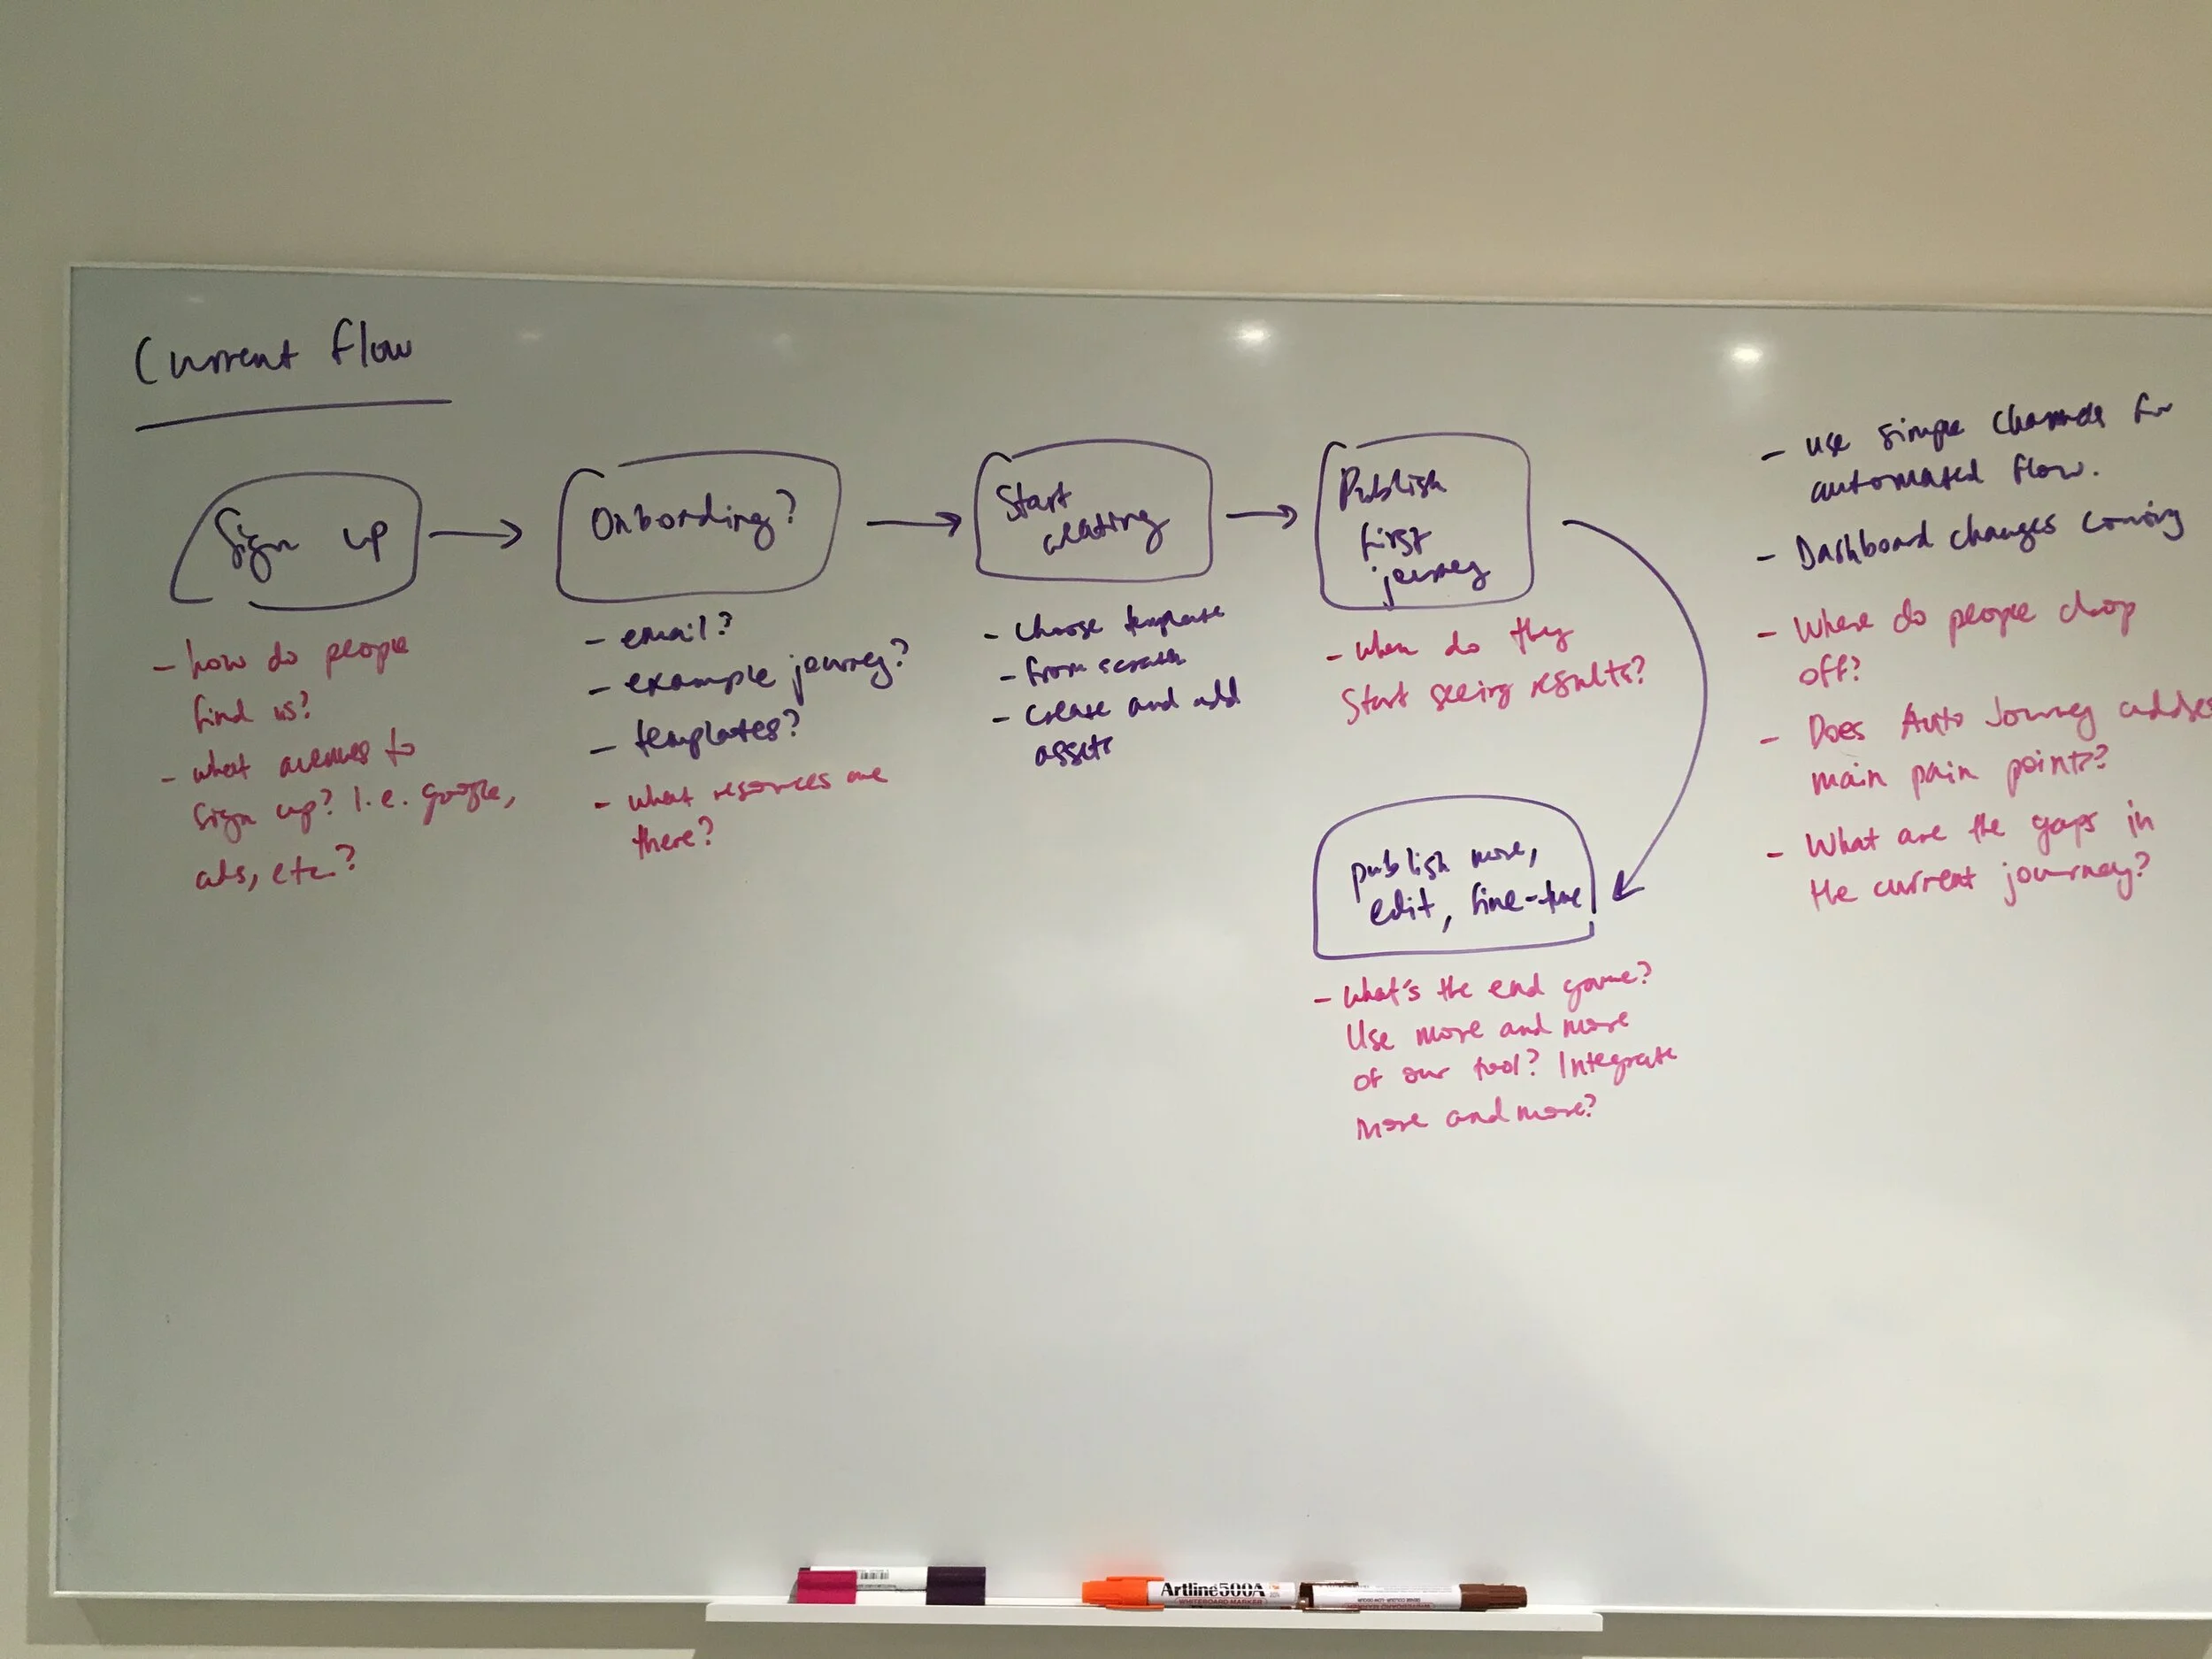 Current flow
Sign up
- how do people
find us?
- what avenues to
sign up? I.e. google,
ads, etc.?
Onbording?
- email?
- example journey?
- templates?
- what resources are
there?
Start
creating
- Choose template
- from scratch
- Create and add
assets
Publish
first
journey
- when do they
Start seeing results?
publish more,
edit, fine-tune
- What's the end game?
Use more and more
of our tool? Integrate
more and more?
- use simple channels for
automated flow.
- Dashboard changes coming
- Where do people drop
off?
- Does Auto Journey
main pain points?
- What are the gaps in
the current journey?
Artline 500A
WHITEBOARD MARKER